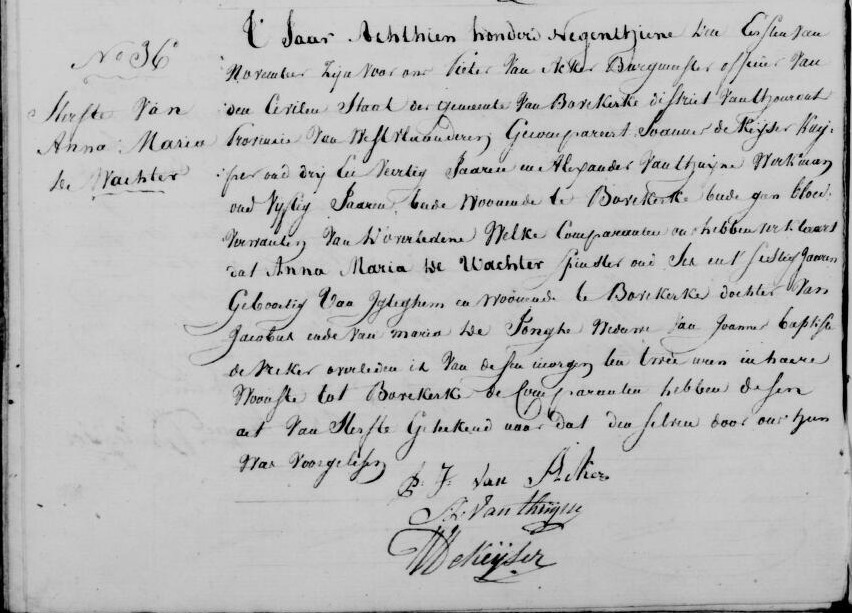 No 36
Sterfte Van
Anna Maria
de Wachter
T Jaar Achthien honderd Negenthiene den Eersten van
November Zijn voor ons Pieter Van Acker Burgmeester officier Van
den Civilen Staat der gemeente Van Bovekerke district Van thourout
Provincie Van Westvlaanderen Gecompareert Joannes de Keyser Kuy-
per oud drij En Veertig Jaaren en Alexander Vanthuyne Werkman
oud Vyftig Jaaren, beede Woonende te Bovekerke beede gen bloed-
Verwanten Van d'overledene Welke Comparanten ons hebben verklaart
dat Anna Maria de Wachter Spinster oud Ses ent Sestig Jaaren
Geboortig Van Iseghem en Woonende te Bovekerke dochter Van
Jacobus ende Van maria de Jonghe Weduwe Van Joannes baptiste
de overleden is Van desen morgen ten twee uren in haere
Woonste tot Bovekerk de Comparanten hebben desen
act Van Sterfte Getekend naar dat den selven door ons hun
Was Voorgelesen
P. J. Van Acker
A. Vanthuyne
J De Keyser